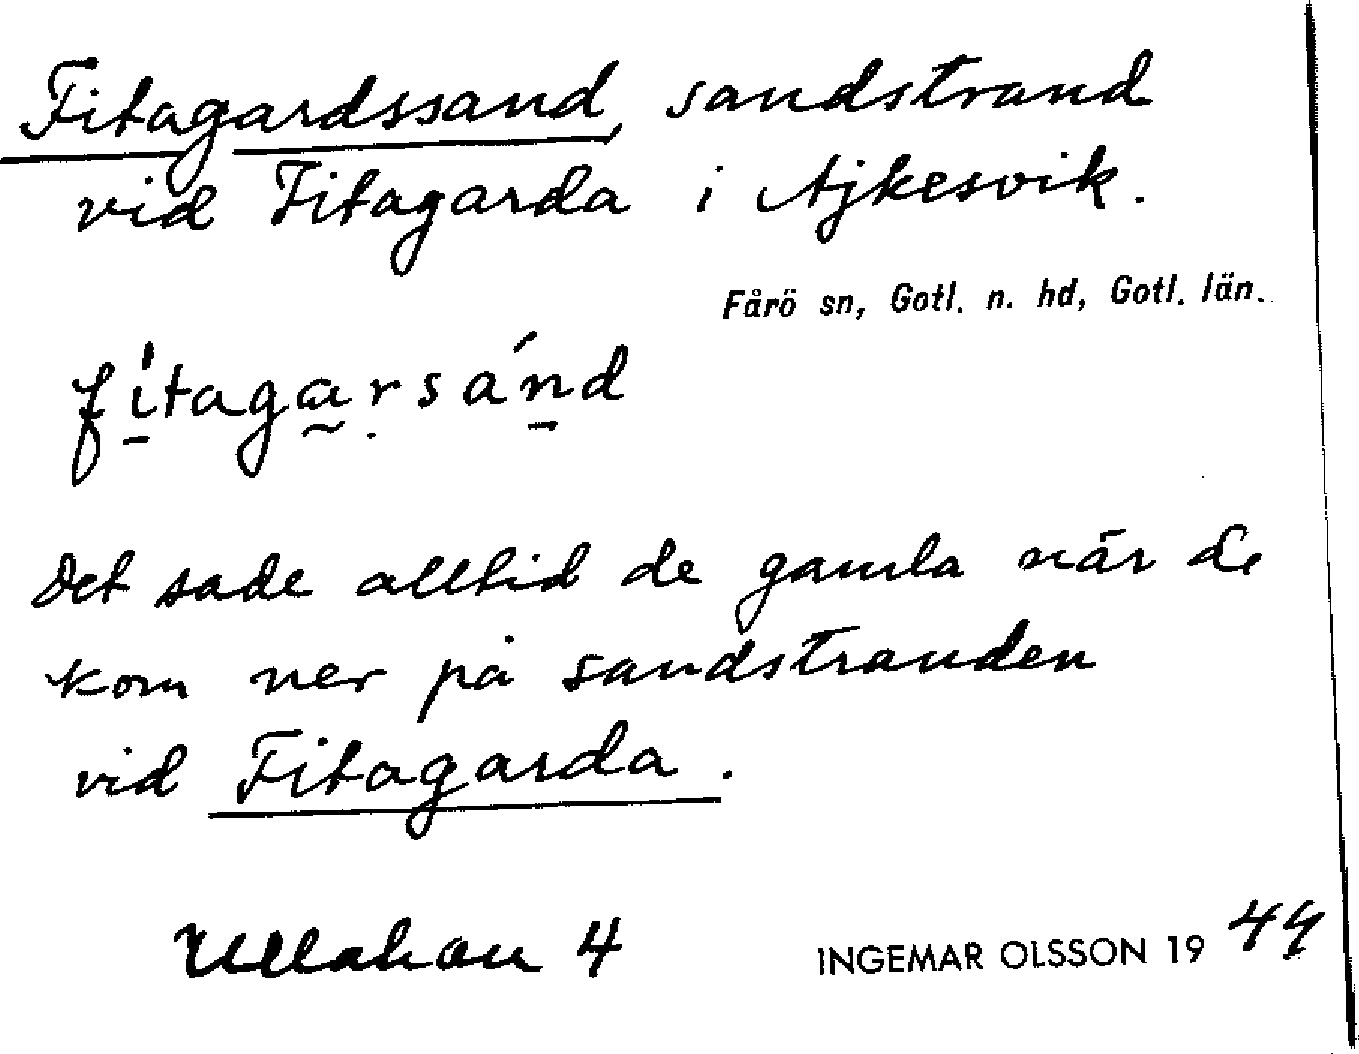 Fitagardssand, sandstrand
vid Fitagarda i Ajkesvik.
Fårö sn, Gotl. n. hd, Gotl. län.
fi̠̍taga̰ṛsán̠d
Det sade alltid de gamla när de
kom ner på sandstranden
vid Fitagarda.
Ullahau 4
INGEMAR OLSSON 1944